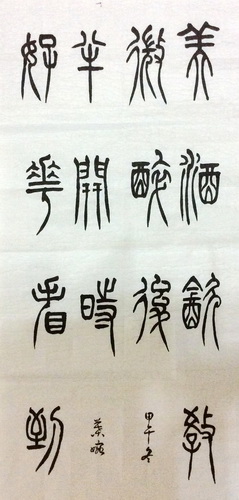 美酒飲教
微醉後
甲午冬
好花看到
半開時